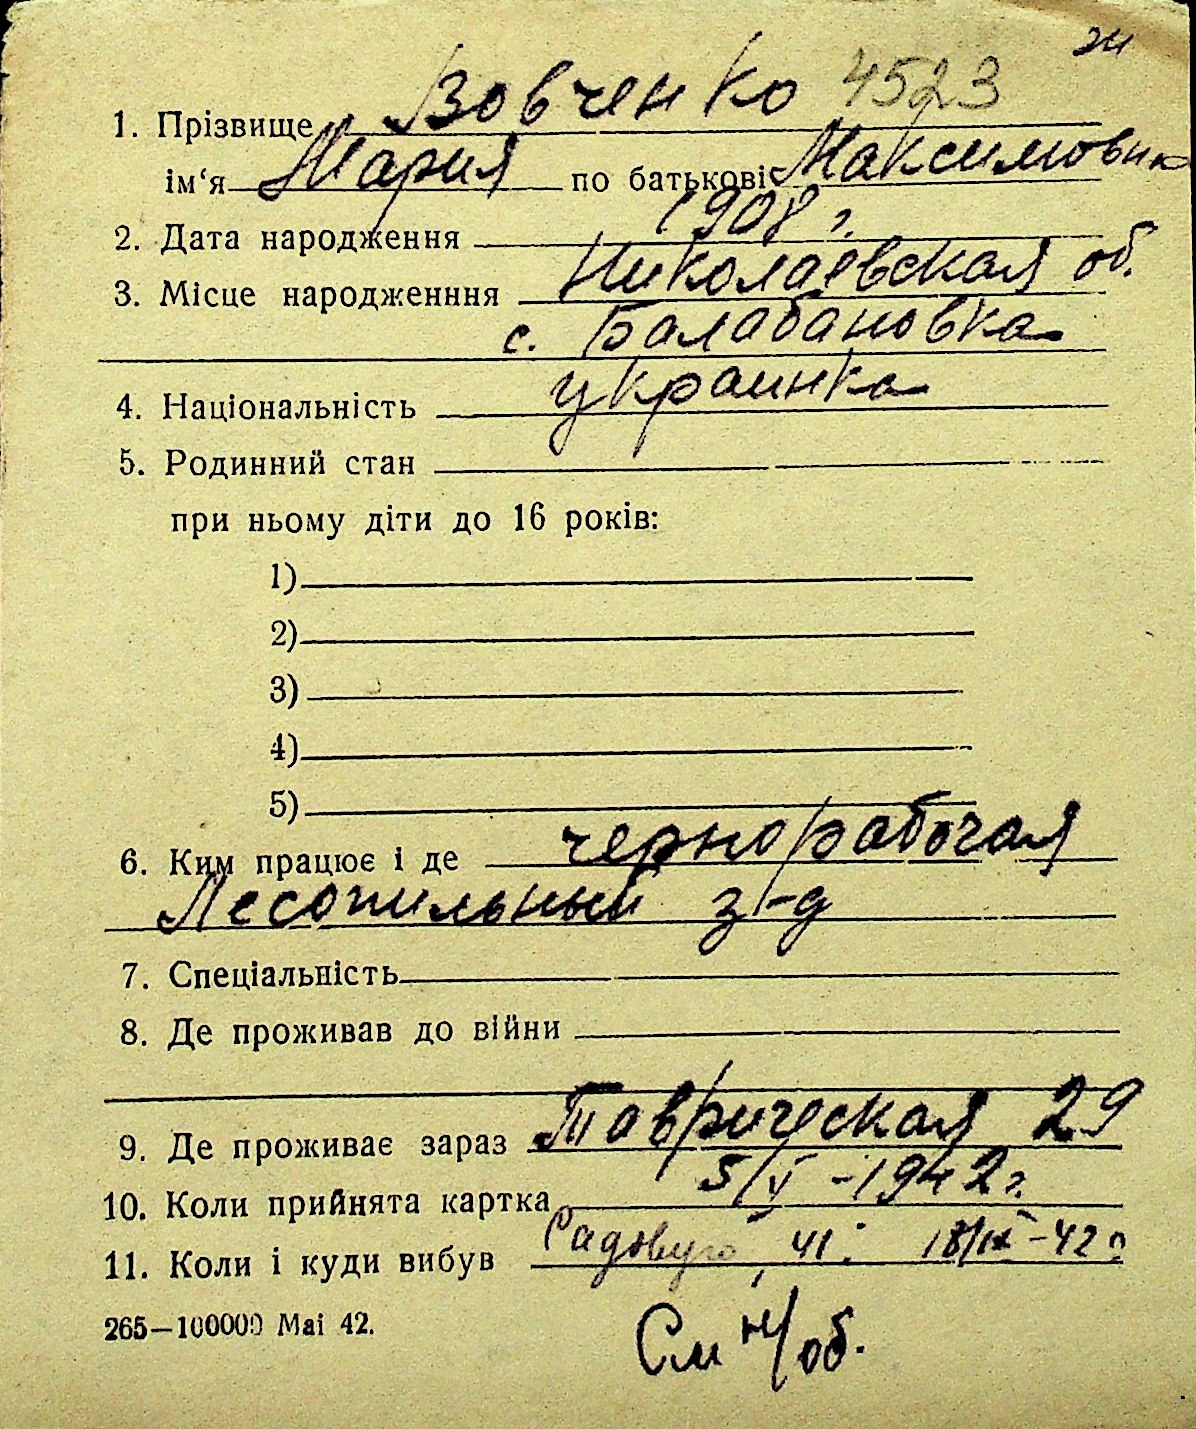 ж
1. Прізвище Вовченко 4523
ім‘я Мария по батькові Максимовн
2. Дата народження 1908 г.
3. Місце народженння Николаевская об.
с. Балабановка
4. Національність украинка
5. Родинний стан
при ньому діти до 16 років:
1)
2)
3)
4)
5)
6. Ким працює і де чернорабочая
Лесопильный з-д
7. Спеціальність
8. Де проживав до війни
9. Де проживає зараз Таврическая 29
10. Коли прийнята картка 5/V -1942 г.
11. Коли і куди вибув Садовую 41. 18/IX-42 г
265—100000 Mai 42.
См н/об.